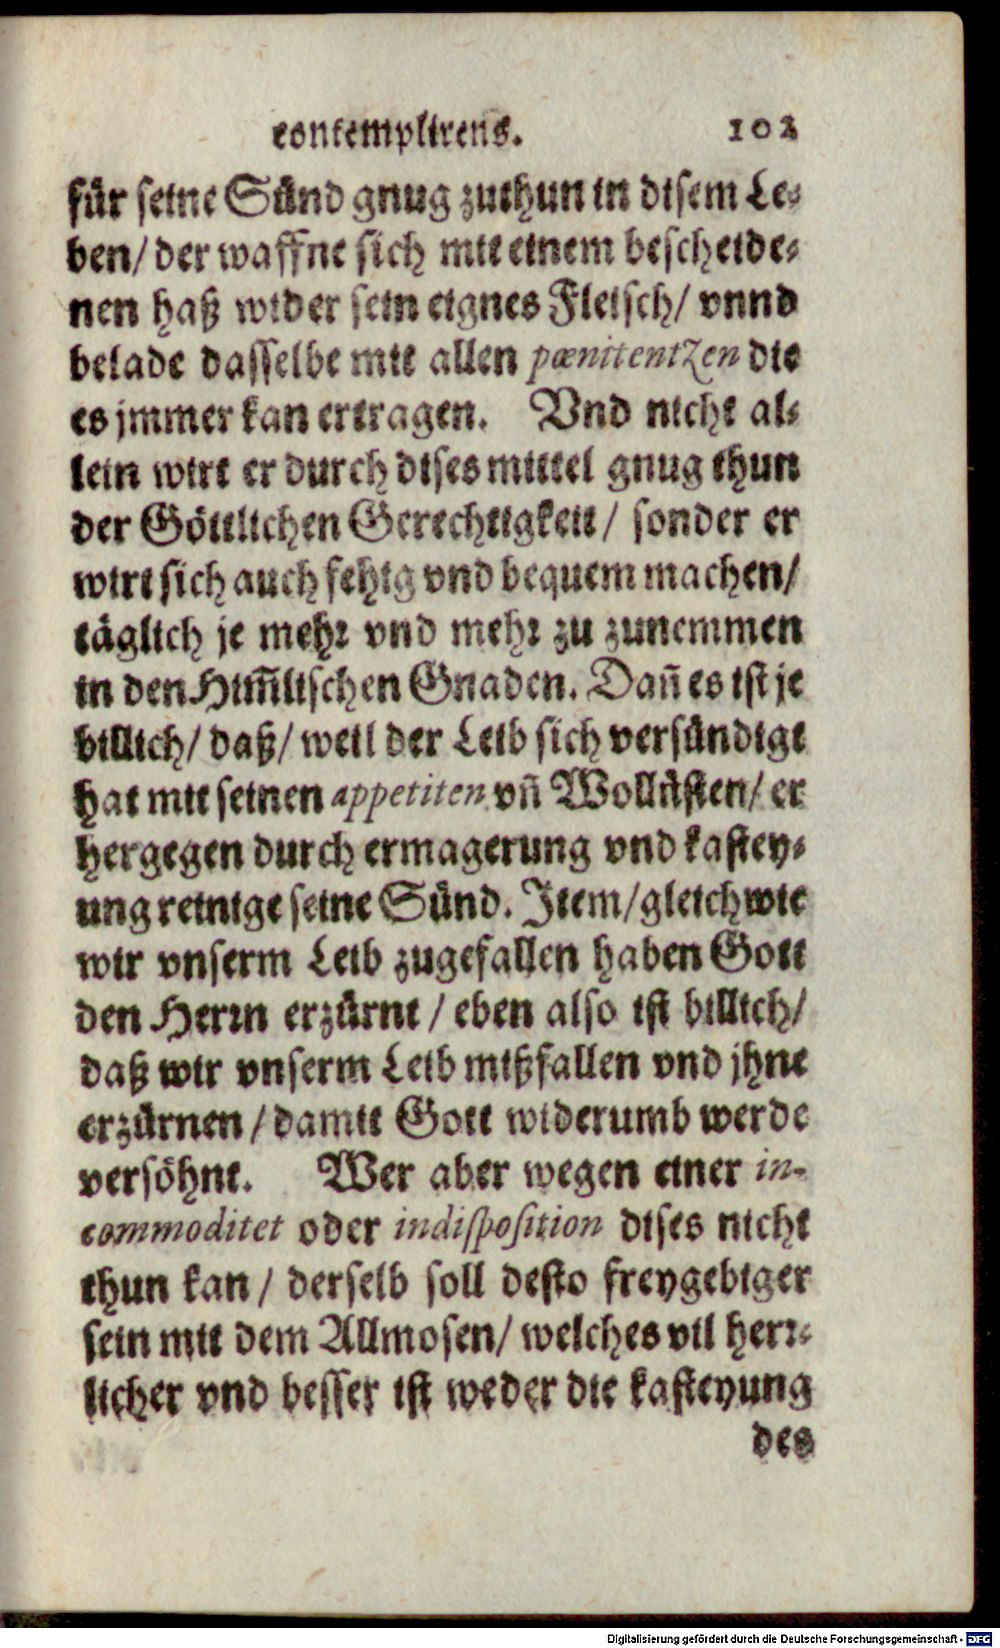 contemplirens. 102
für seine Sünd gnug zuthun in disem Le-
ben/ der waffne sich mit einem bescheide-
nen haß wider sein eignes Fleisch/ vnnd
belade dasselbe mit allen pœnitentzen die
es jmmer kan ertragen. Vnd nicht al-
lein wirt er durch dises mittel gnug thun
der Göttlichen Gerechtigkeit/ sonder er
wirt sich auch fehig vnd bequem machen/
täglich je mehr vnd mehr zu zunemmen
in den Him̃lischen Gnaden. Dañ es ist je
billich/ daß/ weil der Leib sich versündigt
hat mit seinen appetiten vñ Wollüsten/ er
hergegen durch ermagerung vnd kastey-
ung reinige seine Sünd. Item/ gleich wie
wir vnserm Leib zugefallen haben Gott
den Herrn erzürnt/ eben also ist billich/
daß wir vnserm Leib mißfallen vnd jhne
erzürnen/ damit Gott widerumb werde
versöhnt. Wer aber wegen einer in-
commoditet oder indisposition dises nicht
thun kan/ derselb soll desto freygebiger
sein mit dem Allmosen/ welches vil herr-
licher vnd besser ist weder die kasteyung
des
Digitalisierung gefördert durch die Deutsche Forschungsgemeinschaft - DFG